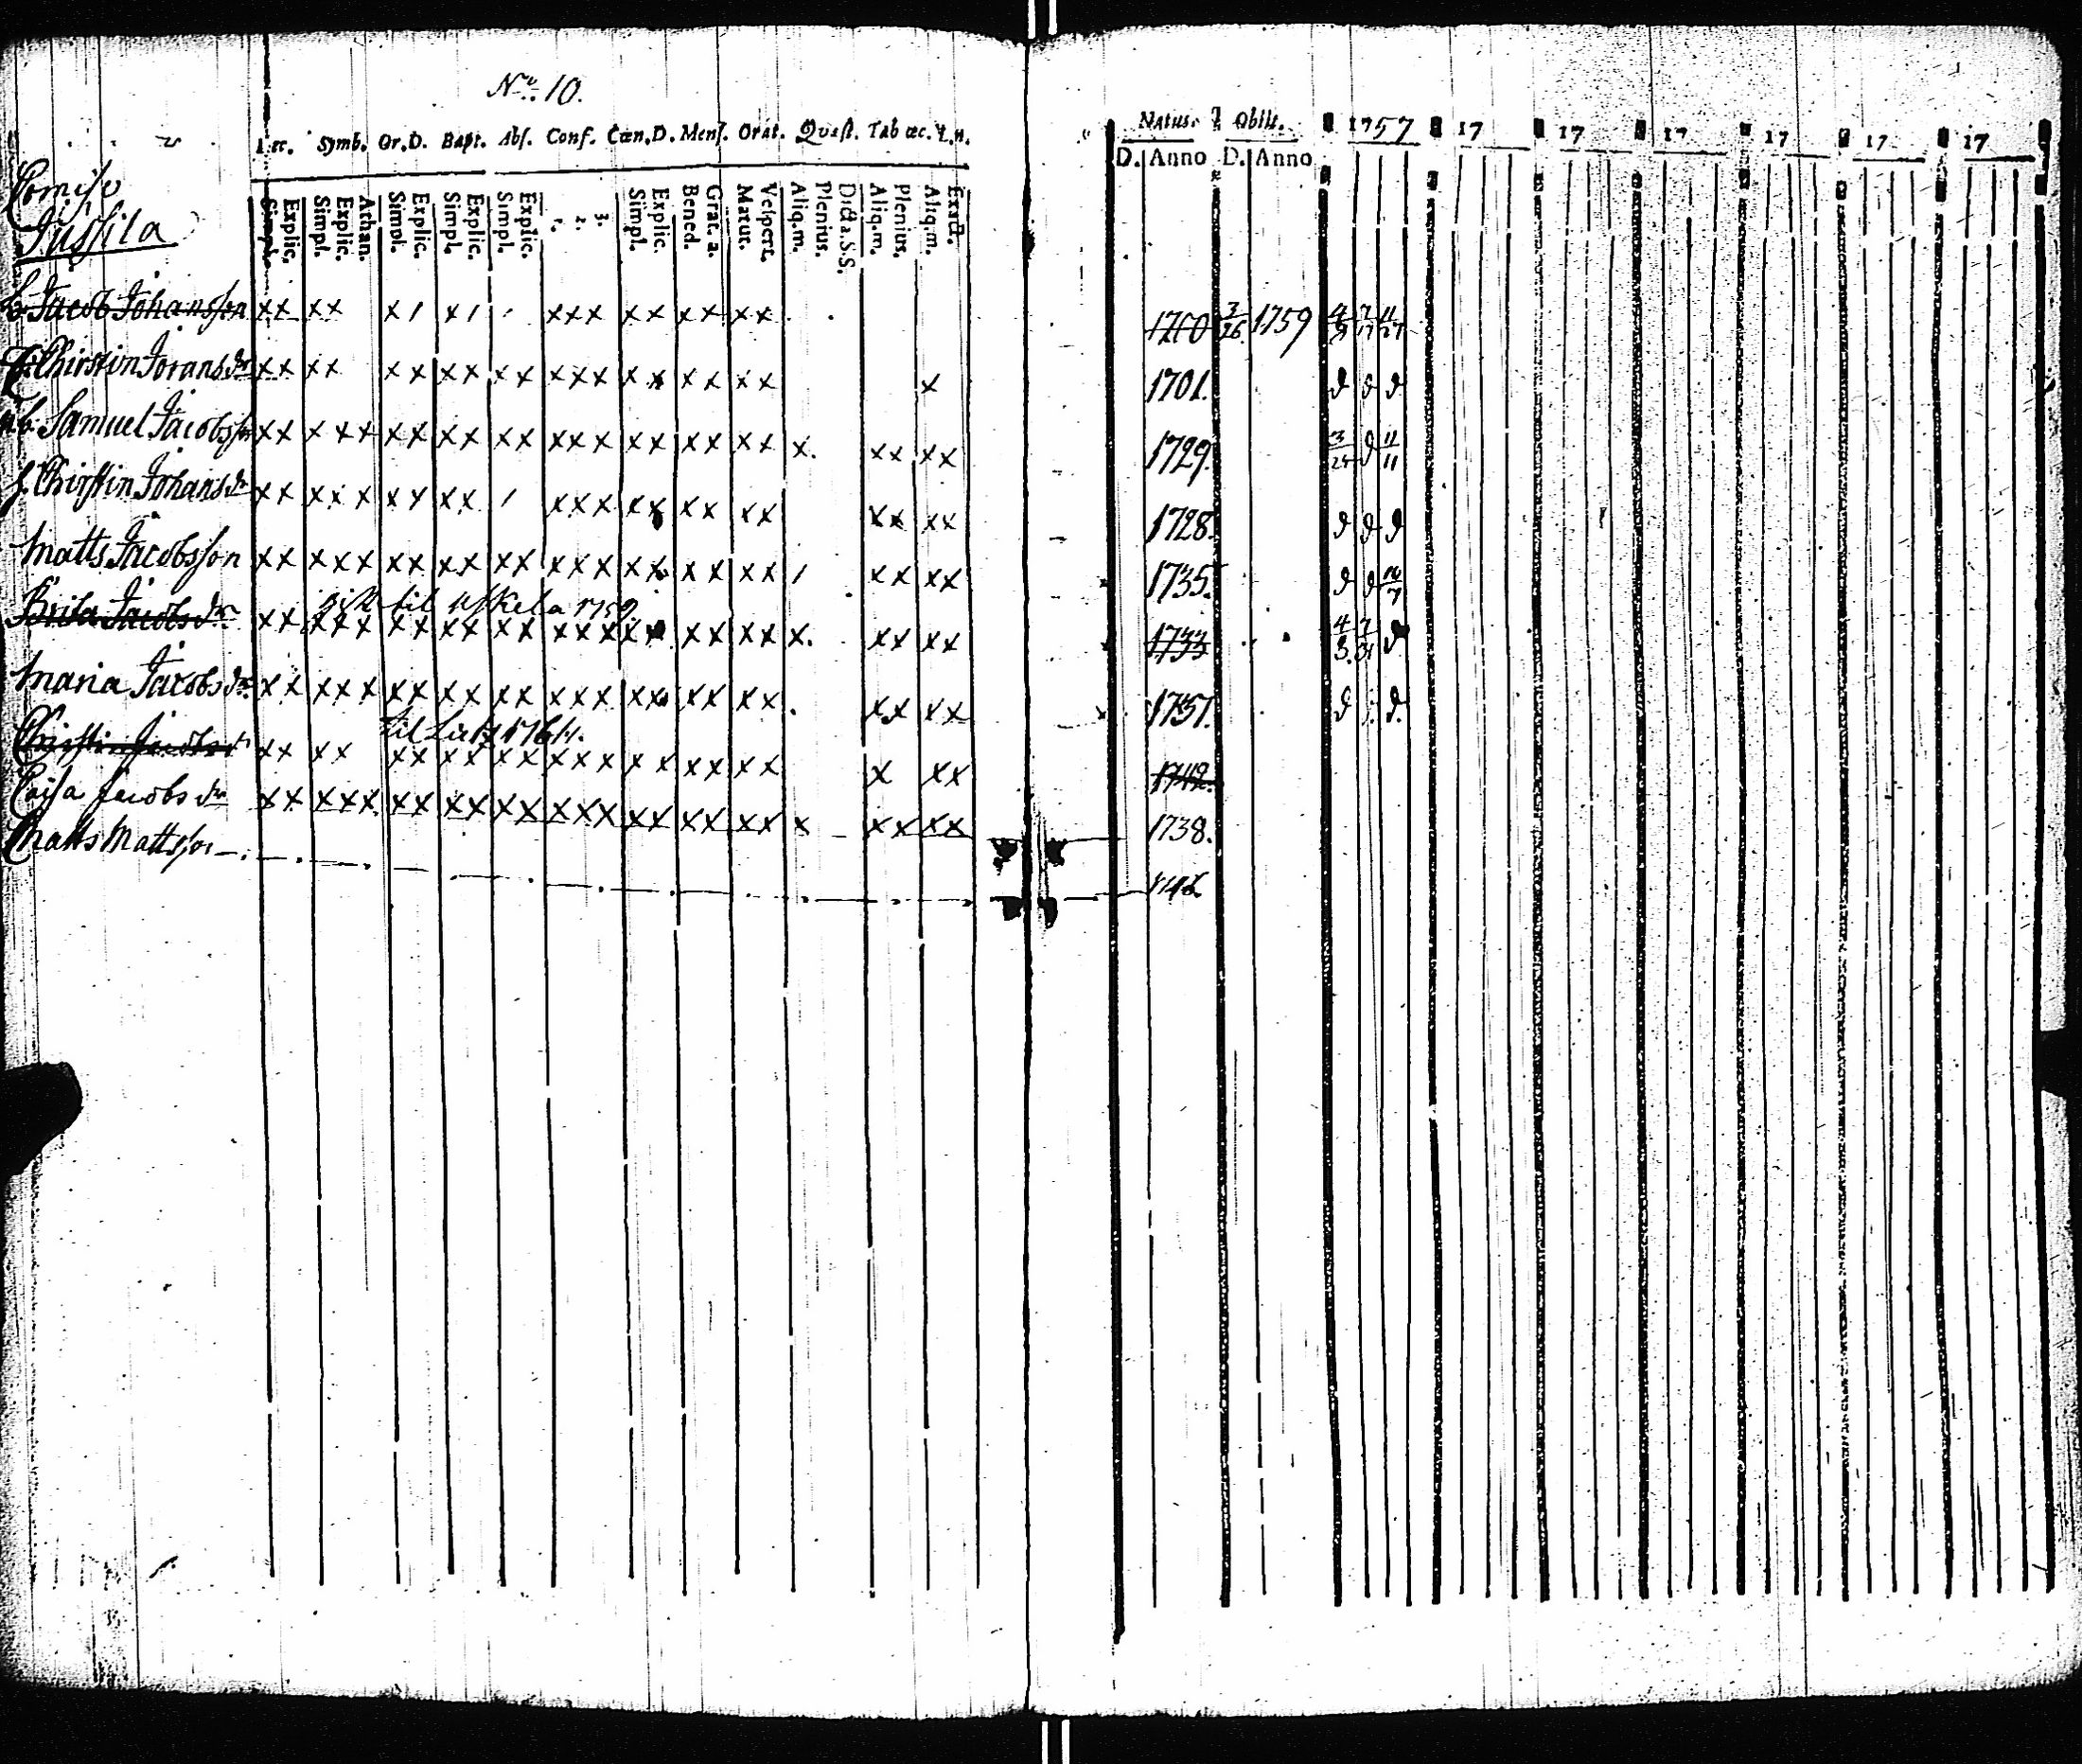 No. 10.
Lec. Symb. Or.D. Bapt. Abs. Conf. Cœn.D. Mens. Orat. Quæst. Tab œc.
Simpl. Explic. Simpl. Explic. Athan. Simpl. Explic. Simpl. Explic. Simpl. Explic. 1. 2. 3. Simpl. Explic. Bened. Grat. a. Matut. Vespert. Aliq.m. Plenius. Dicta.S.S. Aliq.m. Plenius. Aliq.m. Exact.
Natus. Obiit. 1757 17 17 17 17 17 17
D. Anno D. Anno
Jussila
b. Jacob Johansson xx xx x/ x/ / xxx xx xx xx 1700 3/26 1759
Chirstin Jorans dr xx xx xx xx xx xxx xx xx xx x 1701.
Samuel Jacobsson xx xxx xx xx xx xxx xx xx xx x. xx xx 1729.
Chirstin Johans dr xx xxx xx xx / xxx xx xx xx xx xx 1728.
Matts Jacobsson xx xxx xx xx xx xxx xx xx xx / xx xx 1735.
til 1759.
Brita Jacobs dr xx xxx xx xx xx xxx xx xx xx x. xx xx 1733
Maria Jacobs dr xx xxx xx xx xx xxx xx xx xx . xx xx
til 1764.
Chirstin Jacobs dr xx xx xx xx xx xxx xx xx xx x xx 1742.
Caisa Jacobs dr xx xxx xx xx xx xxx xx xx xx x xx xx 1738.
Matts Mattsson